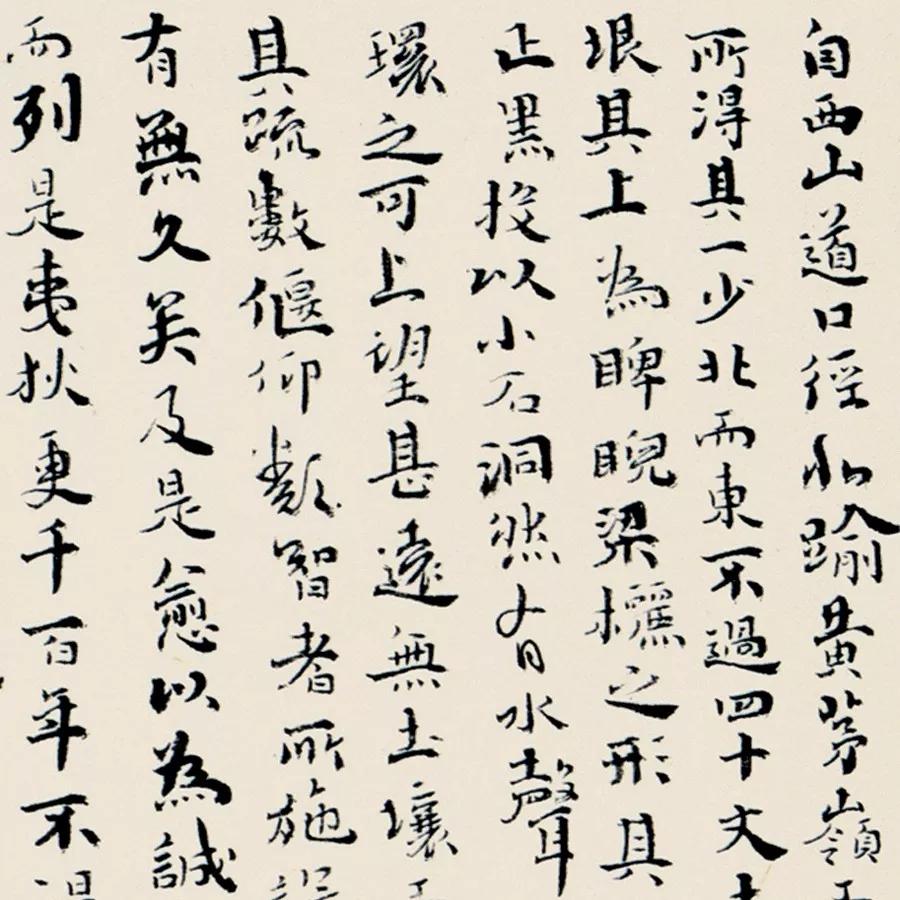 自西山道口徑北踰黃茅嶺
所得其一少北而東不過四十丈
垠其上為睥睨梁欐之形其
正黑投以小石洞然有水聲
環之可上望甚遠無土壤
其疏數偃仰類智者所施
有無久矣及是愈以為誠
而列是夷狄更千百年不